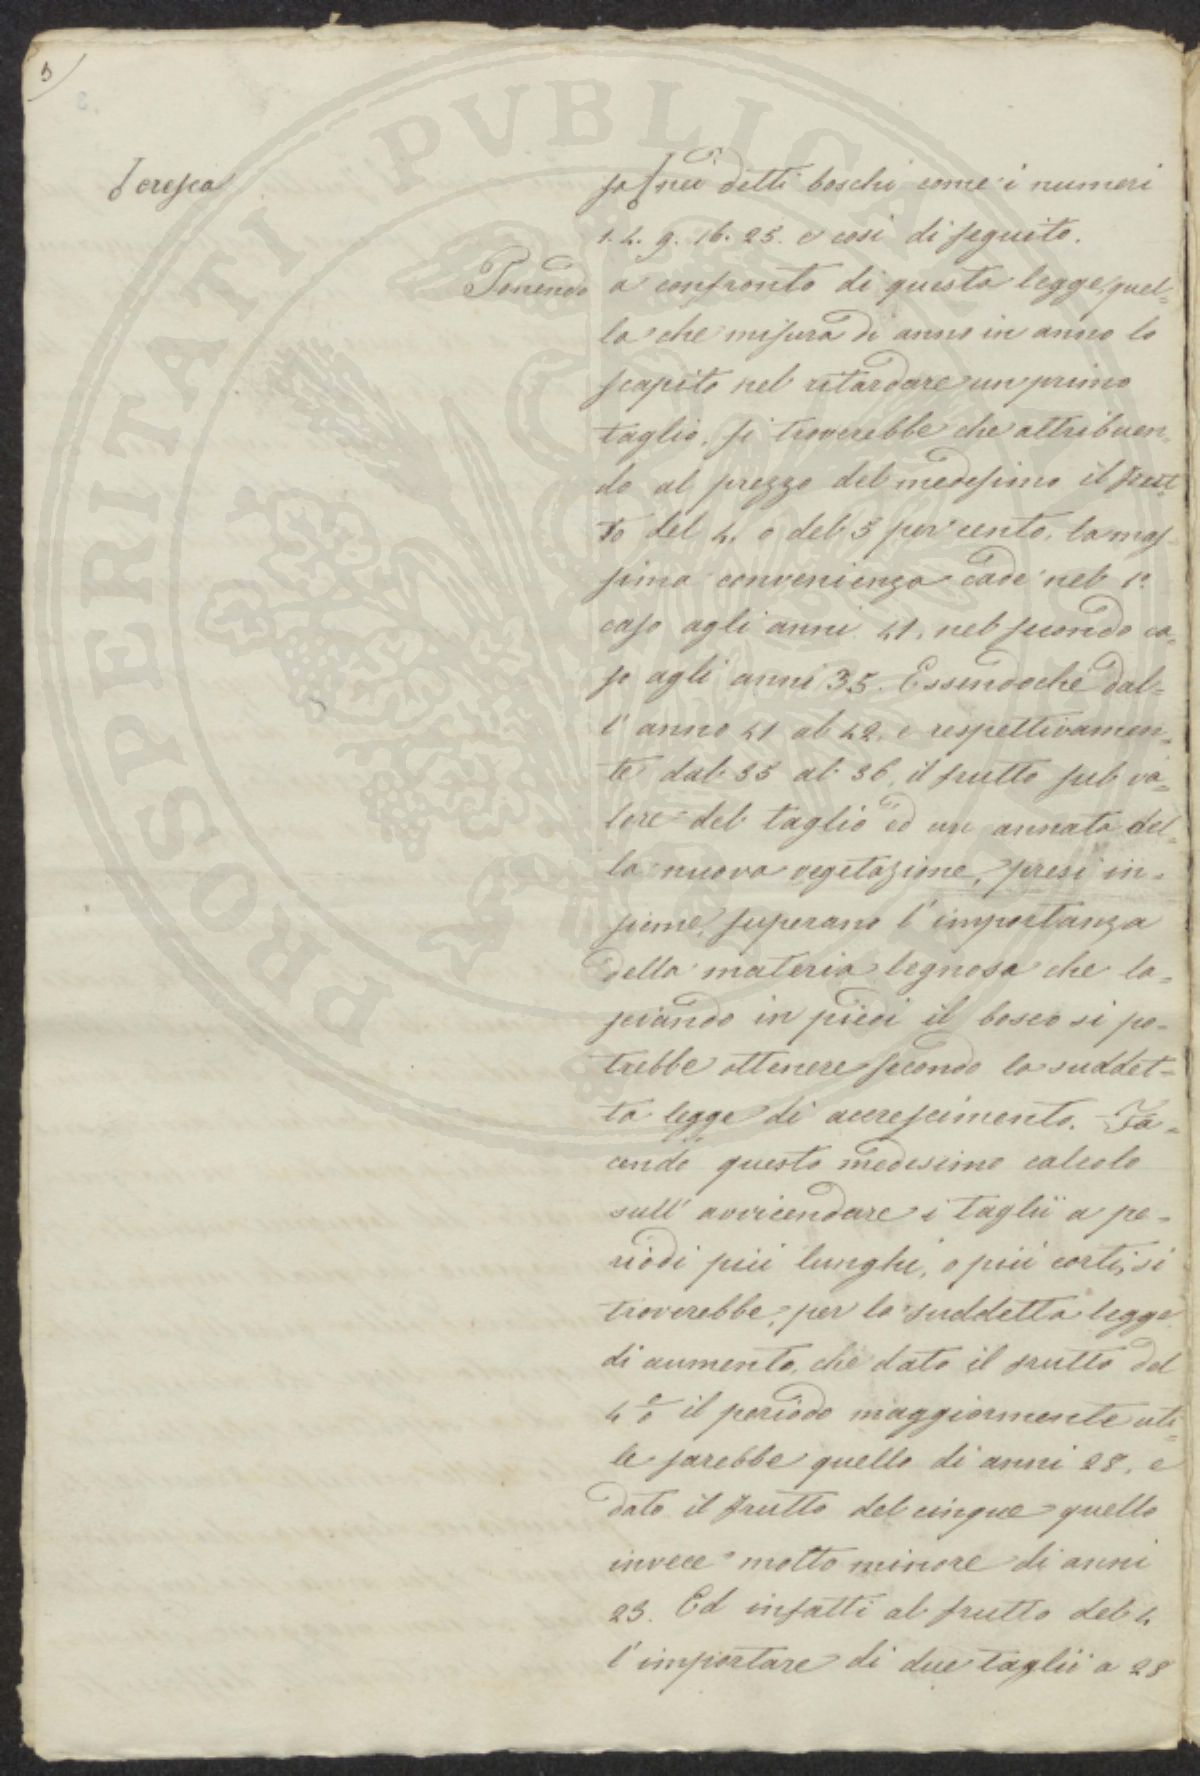 5
cresca
sa nei detti boschi come i numeri
1. 4. 9. 16. 25. e così di seguito.
Ponendo a confronto di questa legge, quel=
la che misura di anno in anno lo
scapito nel ritardare un primo
taglio, si troverebbe che attribuen=
do al prezzo del medesimo il frut=
to del 4. o del 5 per cento, la mas=
sima convenienza cade nel 1º
caso agli anni 41, nel secondo ca=
so agli anni 35. Essendoché dal=
l'anno 41 al 42, e respettivamen=
te dal 35 al 36, il frutto sul va=
lore del taglio ed un annata del=
la nuova vegetazione, presi in=
sieme, superano l'importanza
della materia legnosa che la=
sciando in piedi il bosco si po=
trebbe ottenere secondo la suddet=
ta legge di accrescimento. Fa=
cendo questo medesimo calcolo
sull'avvicendare i taglii a pe=
riodi più lunghi, o più corti, si
troverebbe, per la suddetta legge
di aumento, che dato il frutto del
4 % il periodo maggiormente uti=
le sarebbe quello di anni 28, e
dato il frutto del cinque quello
invece molto minore di anni
23. Ed infatti al frutto del 4
l'importare di due taglii a 28
PROSPERITATI PVBLICAE